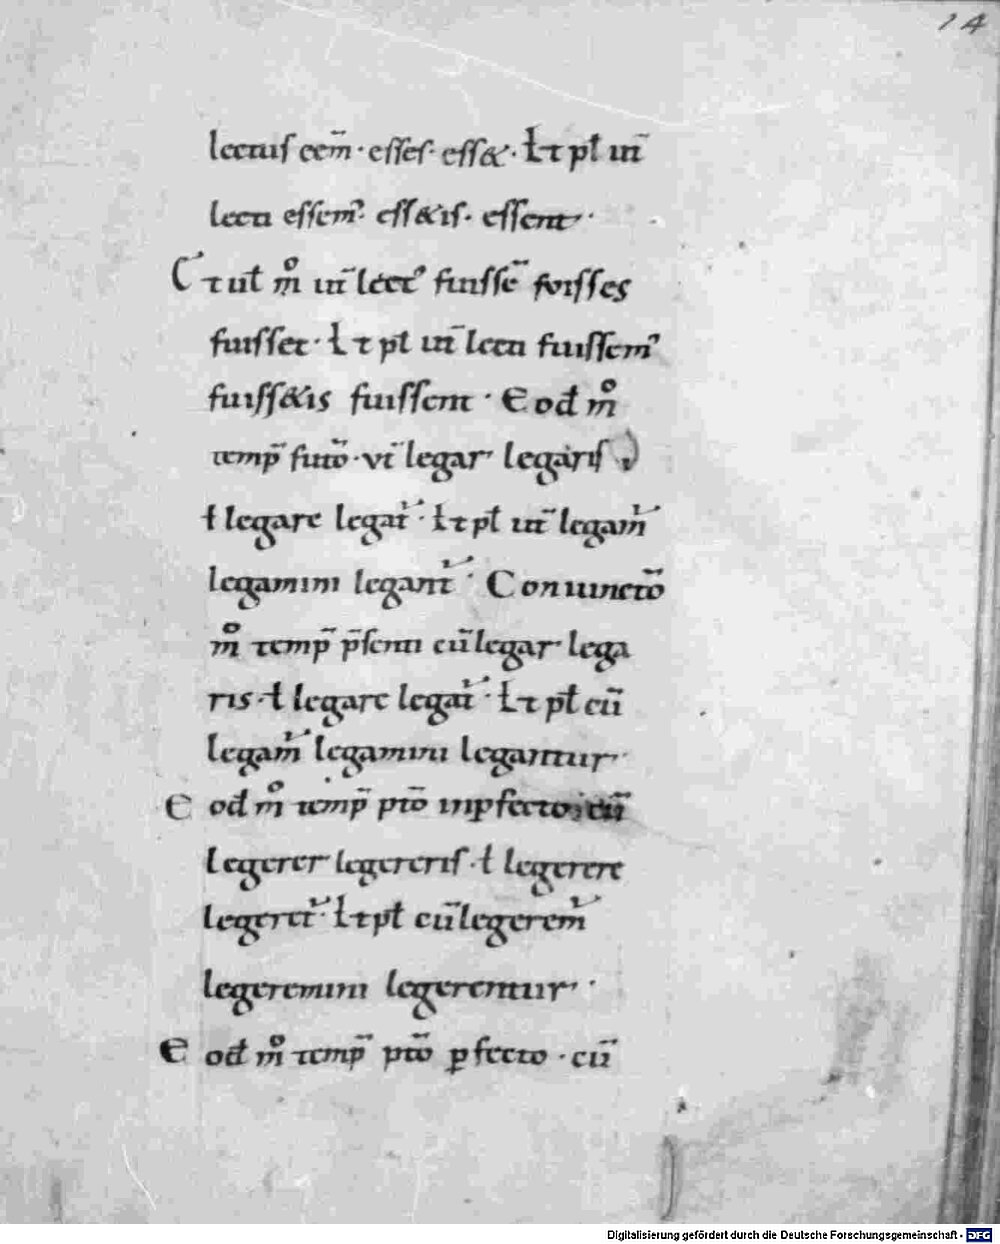 14
lectus ēem̄ · esses · ess& · ł⁊ pł ut̄
lecti essem᾿ · ess&is · essent ·
⁊ ul̄ m̊ ut̄ lect᾿ fuissē foisses
fuisset · ł ⁊ pł ut̄ lecti fuissem᾿
fuiss&is fuissent · Eod̄ m̊
temp̄ futō · vt̄ legar legaris
ł legare legat̄ · ł⁊ pł ut̄ legam̄
legamini legant̄ · Coniunctō
m̊ temp̄ p̄senti cū legar lega
ris · ł legare legat̄ · ł⁊ pł cū
legam̄ legamini legantur
E od̄ m̊ temp̄ ptō inpfecto · cū
legerer legereris · ł legerere
legeret̄ · ł⁊ pł cū legerem̄
legeremini legerentur ·
E od̄ m̊ temp̄ ptō ꝑfecto · cū
Digitalisierung gefördert durch die Deutsche Forschungsgemeinschaft - DFG